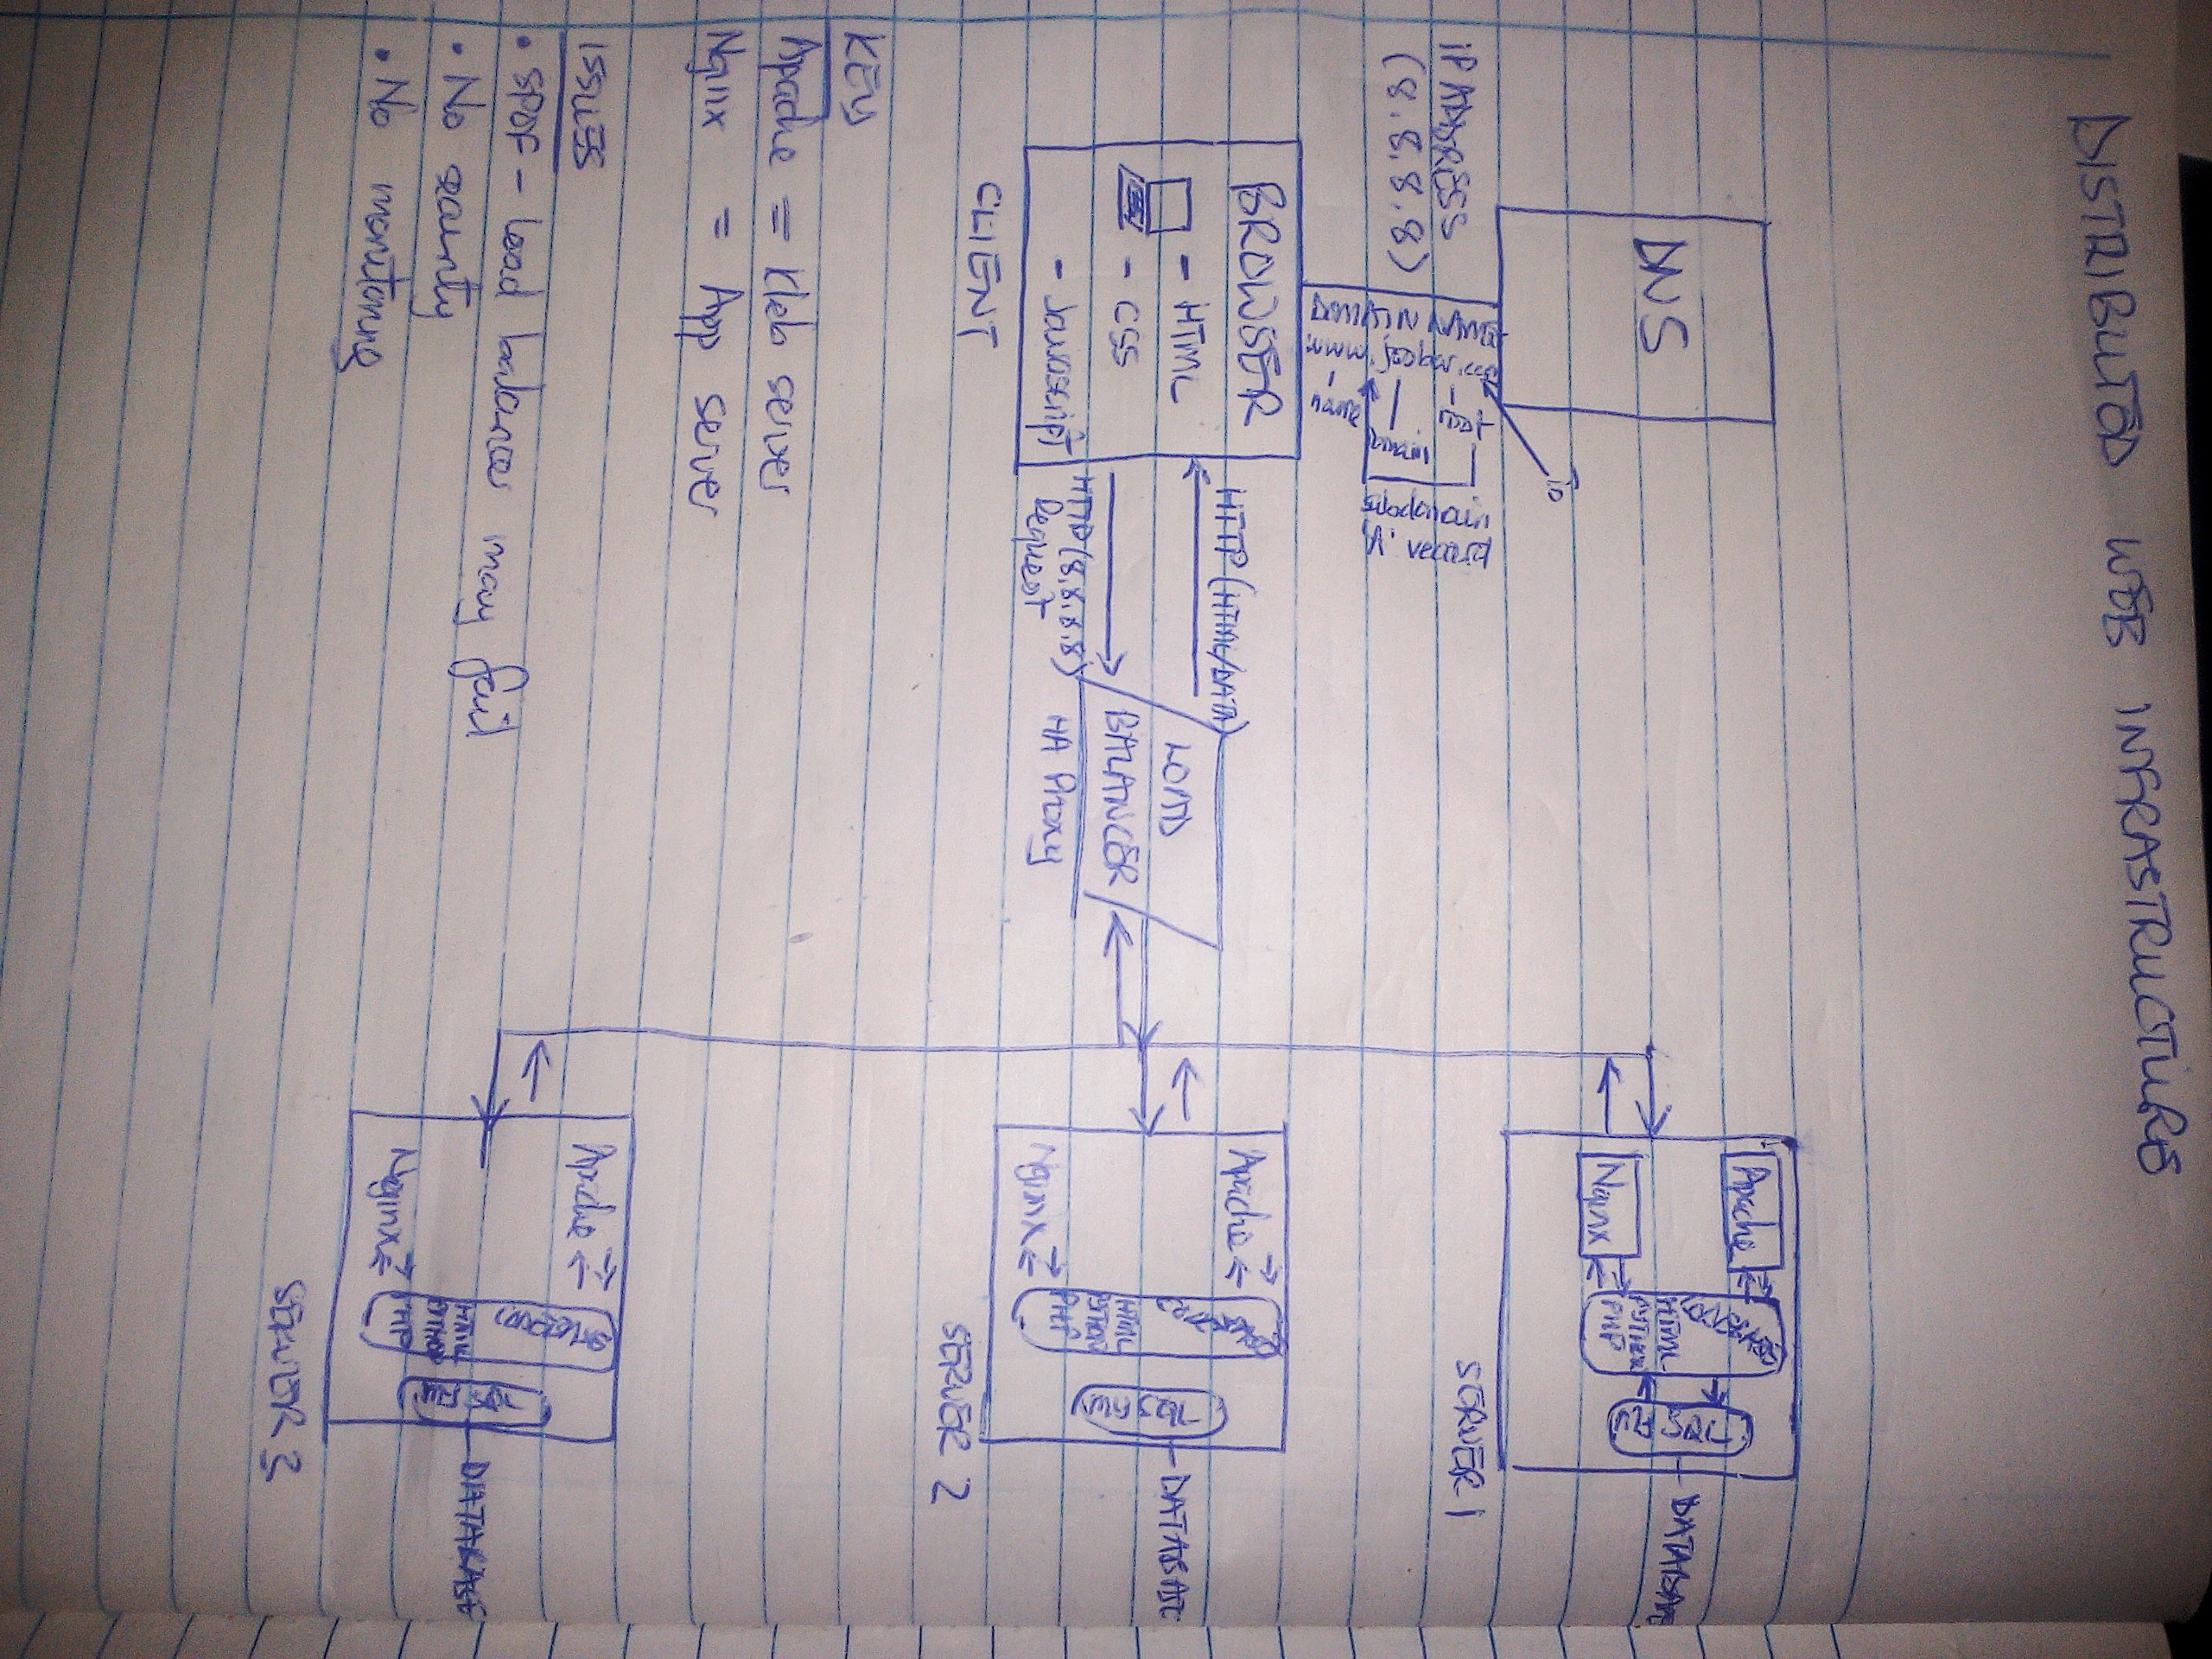 DISTRIBUTED WEB INFRASTRUCTURE
DNS
IP ADDRESS
(8.8.8.8)
DOMAIN NAME
root
domain
name
subdomain
BROWSER
- HTML
- CSS
- Javascript
CLIENT
HTTP (HTML/DATA)
HTTP (8.8.8.8)
Request
LOAD
BALANCER
HA Proxy
Apache
Nginx
HTML
PYTHON
PHP
MY SQL
DATABASE
SERVER 1
Apache
Nginx
HTML
PYTHON
PHP
MY SQL
DATABASE
SERVER 2
Apache
Nginx
HTML
PYTHON
PHP
MY SQL
DATABASE
SERVER 3
KEY
Apache = Web server
Nginx = App server
ISSUES
• SPOF - Load balancer may fail
• No security
• No monitoring